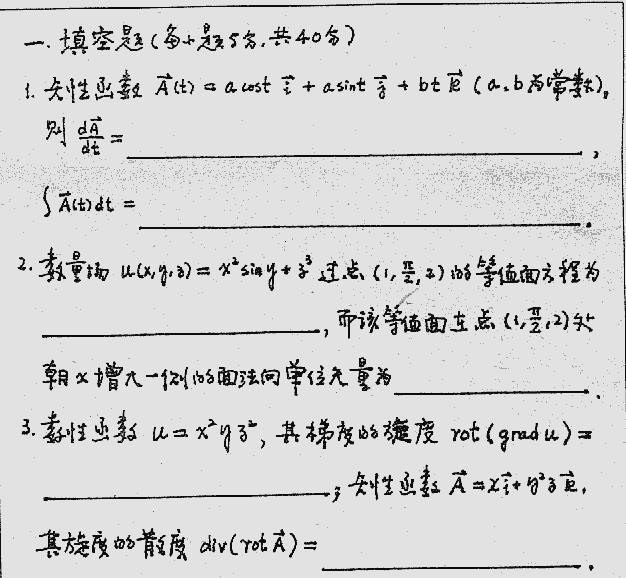 一. 填空题(每小题5分,共40分)
1. 矢性函数 A⃗(t) = a cost i⃗ + a sint j⃗ + bt k⃗ (a、b为常数),
则 dA⃗/dt = ____________ ,
∫A⃗(t)dt = ____________ .
2. 数量场 u(x,y,z) = x² sin y + z³ 过点 (1, π/2, 2) 的等值面方程为
____________ , 而该等值面在点 (1, π/2, 2) 处
朝 x 增大一侧的面法向单位矢量为 ____________ .
3. 数性函数 u = x²yz², 其梯度的旋度 rot(grad u) =
____________ ; 矢性函数 A⃗ = x i⃗ + y²z k⃗,
其旋度的散度 div(rot A⃗) = ____________ .